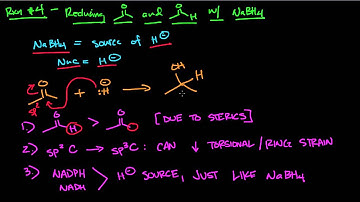 Rxn #4 - Reducing O and O H w/ NaBH4
NaBH4 = source of H⊖
Nuc = H⊖
O + ⊖:H → OH H
sp²
1) O H > O [DUE TO STERICS]
2) sp² C → sp³ C : CAN ↓ TORSIONAL/RING STRAIN
3) NADPH
NADH > H⊖ SOURCE, JUST LIKE NaBH4